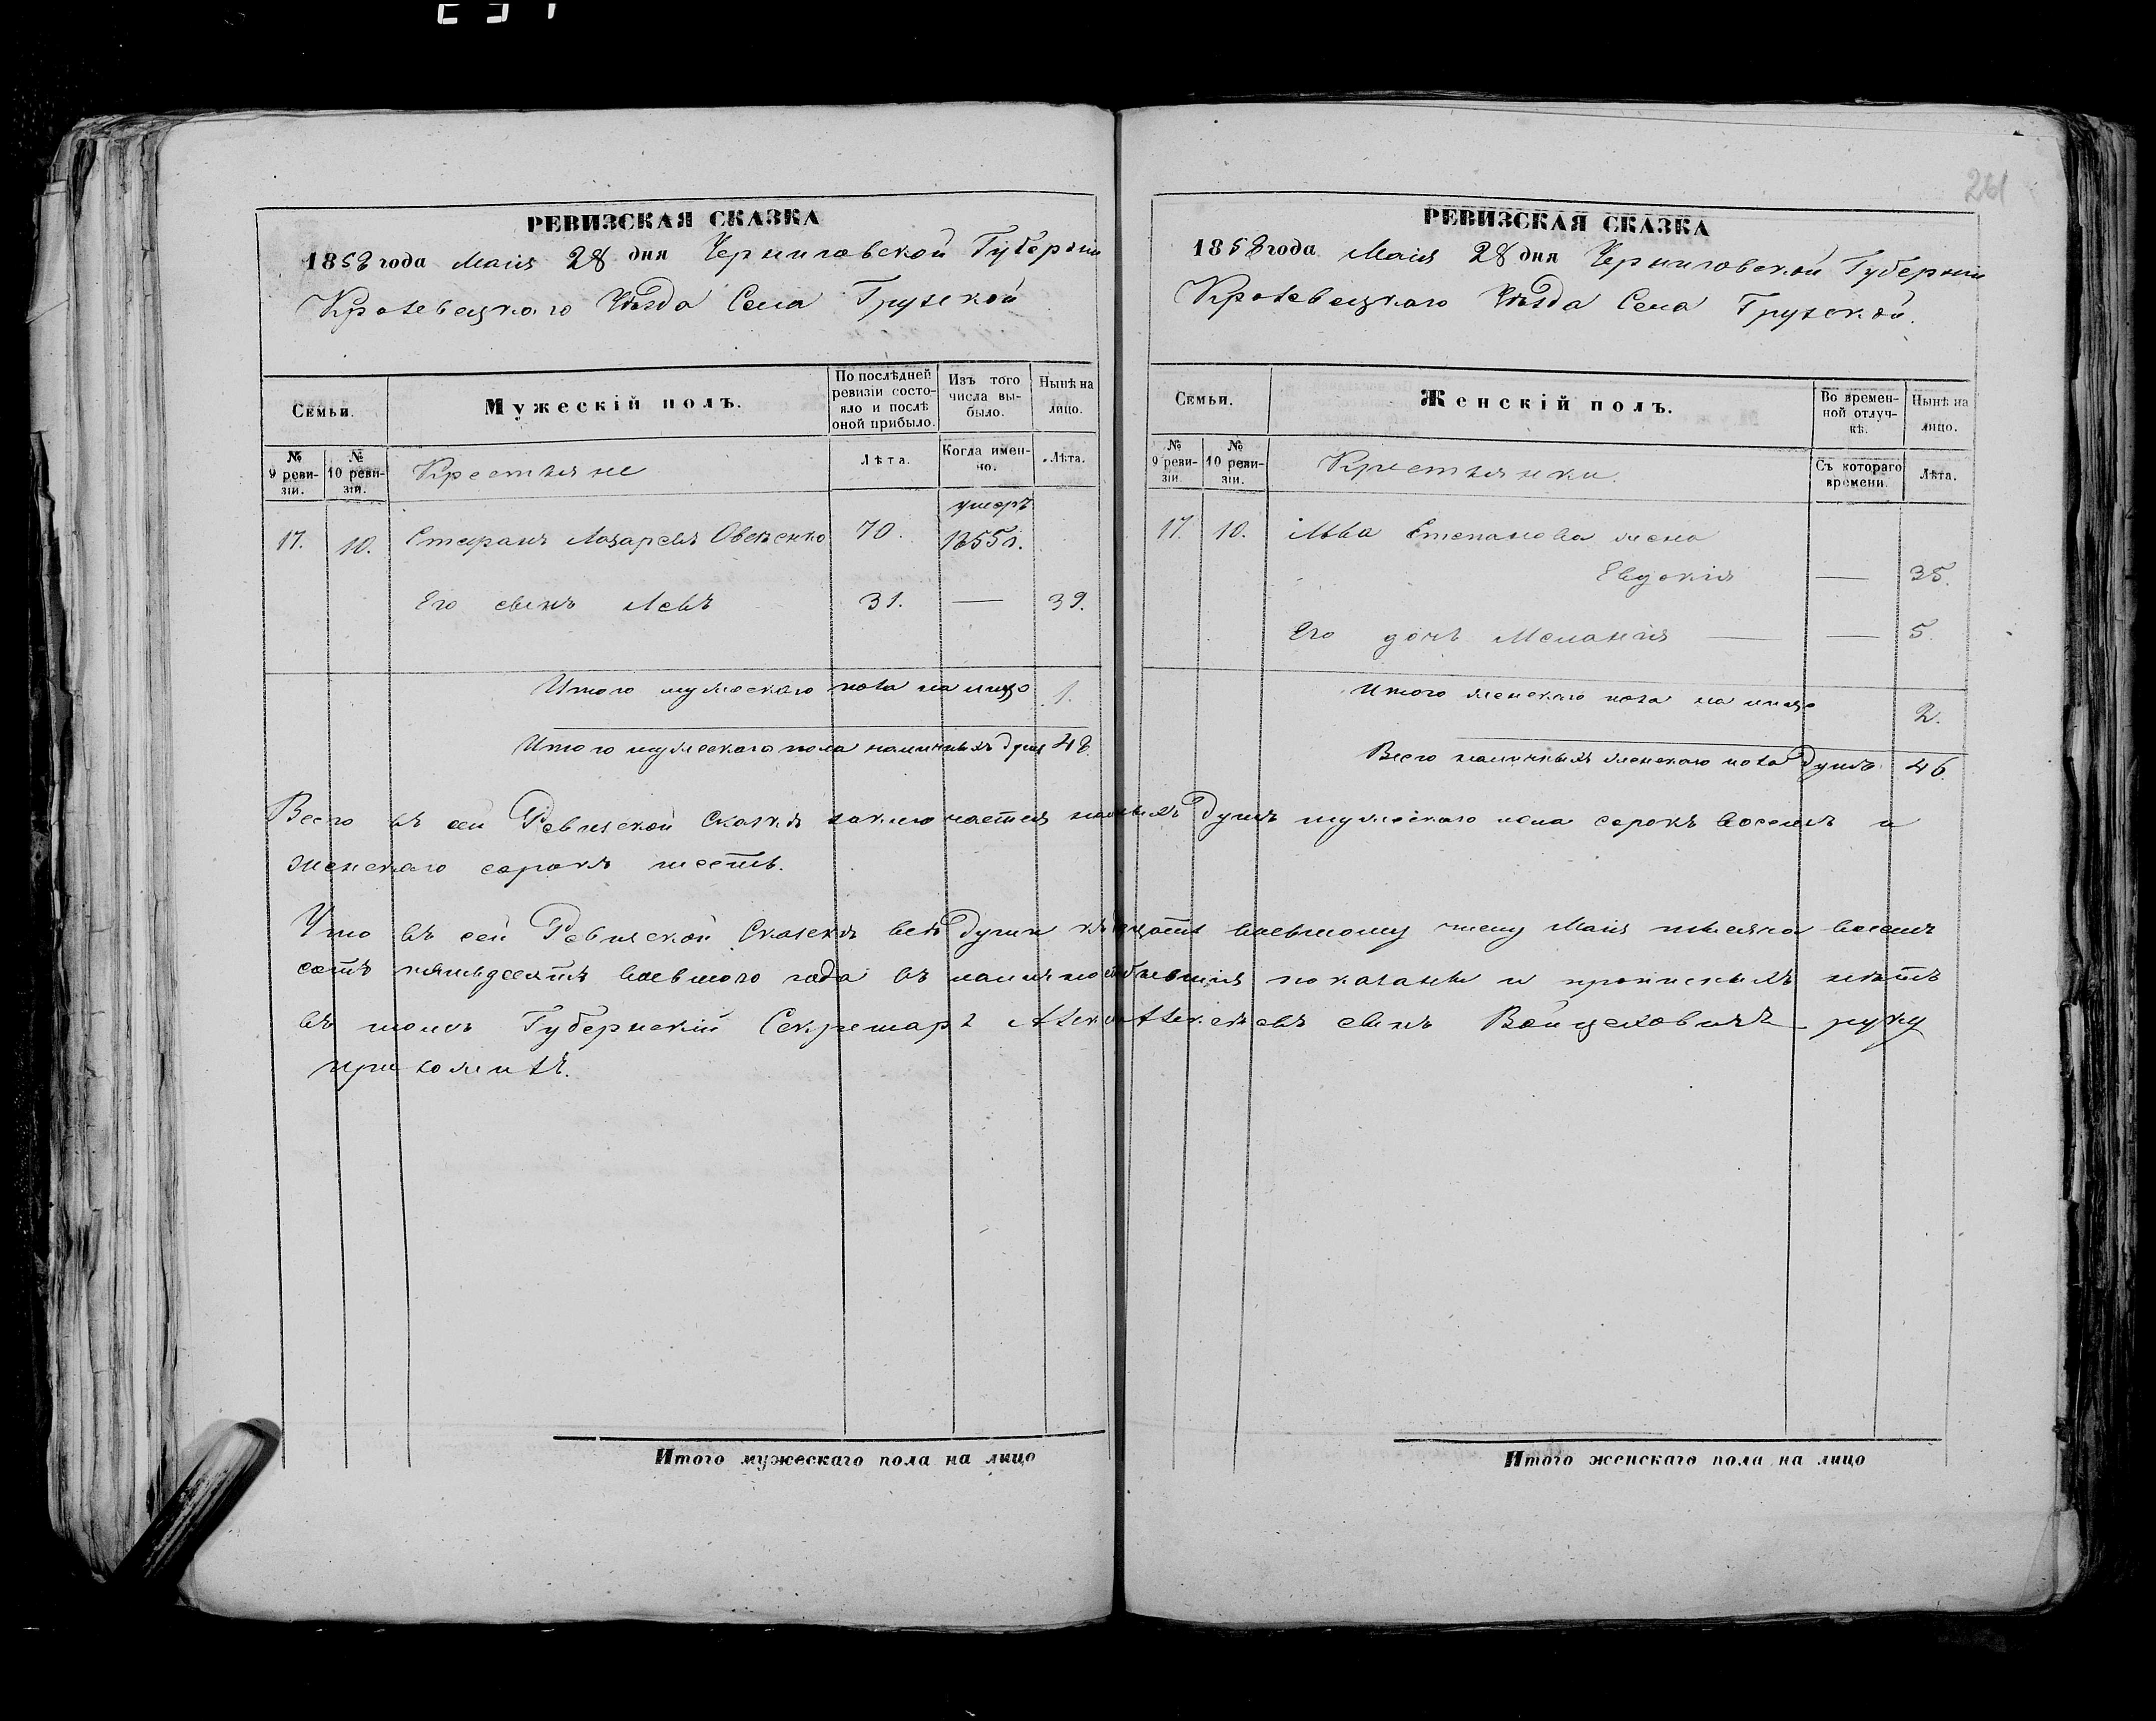 261
РЕВИЗСКАЯ СКАЗКА
1858 года Маія 28 дня Черниговской Губерніи
Кролевецкаго Уѣзда Села Грузской
Семьи.
Мужескій полъ.
По послѣдней ревизіи состояло и послѣ оной прибыло.
Изъ того числа выбыло.
Нынѣ на лицо.
№ 9 ревизіи.
№ 10 ревизіи.
Крестьяне
Лѣта.
Когда именно.
Лѣта.
умеръ
17. 10. Стефанъ Лазаревъ Овсѣенко 70. 1855 г.
Его сынъ Левъ 31. — 39.
Итого мужескаго пола на лицо 1.
Итого мужескаго пола наличныхъ душъ 48.
РЕВИЗСКАЯ СКАЗКА
1858 года Маія 28 дня Черниговской Губерніи
Кролевецкаго Уѣзда Села Грузской.
Семьи.
Женскій полъ.
Во временной отлучкѣ.
Нынѣ на лицо.
№ 9 ревизіи.
№ 10 ревизіи.
Крестьянки.
Съ котораго времени.
Лѣта.
17. 10. Льва Степанова жена
Евдокія — 35.
Его дочь Меланія — — 5.
Итого женскаго пола на лицо 2.
Всего наличныхъ женскаго пола душъ 46.
Всего въ сей Ревизской Сказкѣ заключается душъ мужескаго пола сорокъ восемь и
женскаго сорокъ шесть.
Что въ сей Ревизской Сказкѣ всѣ души къ осьмому числу Маія мѣсяца восемь
сотъ пятьдесятъ восьмого года въ показаны и прописныхъ нѣтъ
въ томъ Губернскій Секретарь Алексѣевъ сынъ Войцеховичъ руку
приложилъ.
Итого мужескаго пола на лицо
Итого женскаго пола на лицо